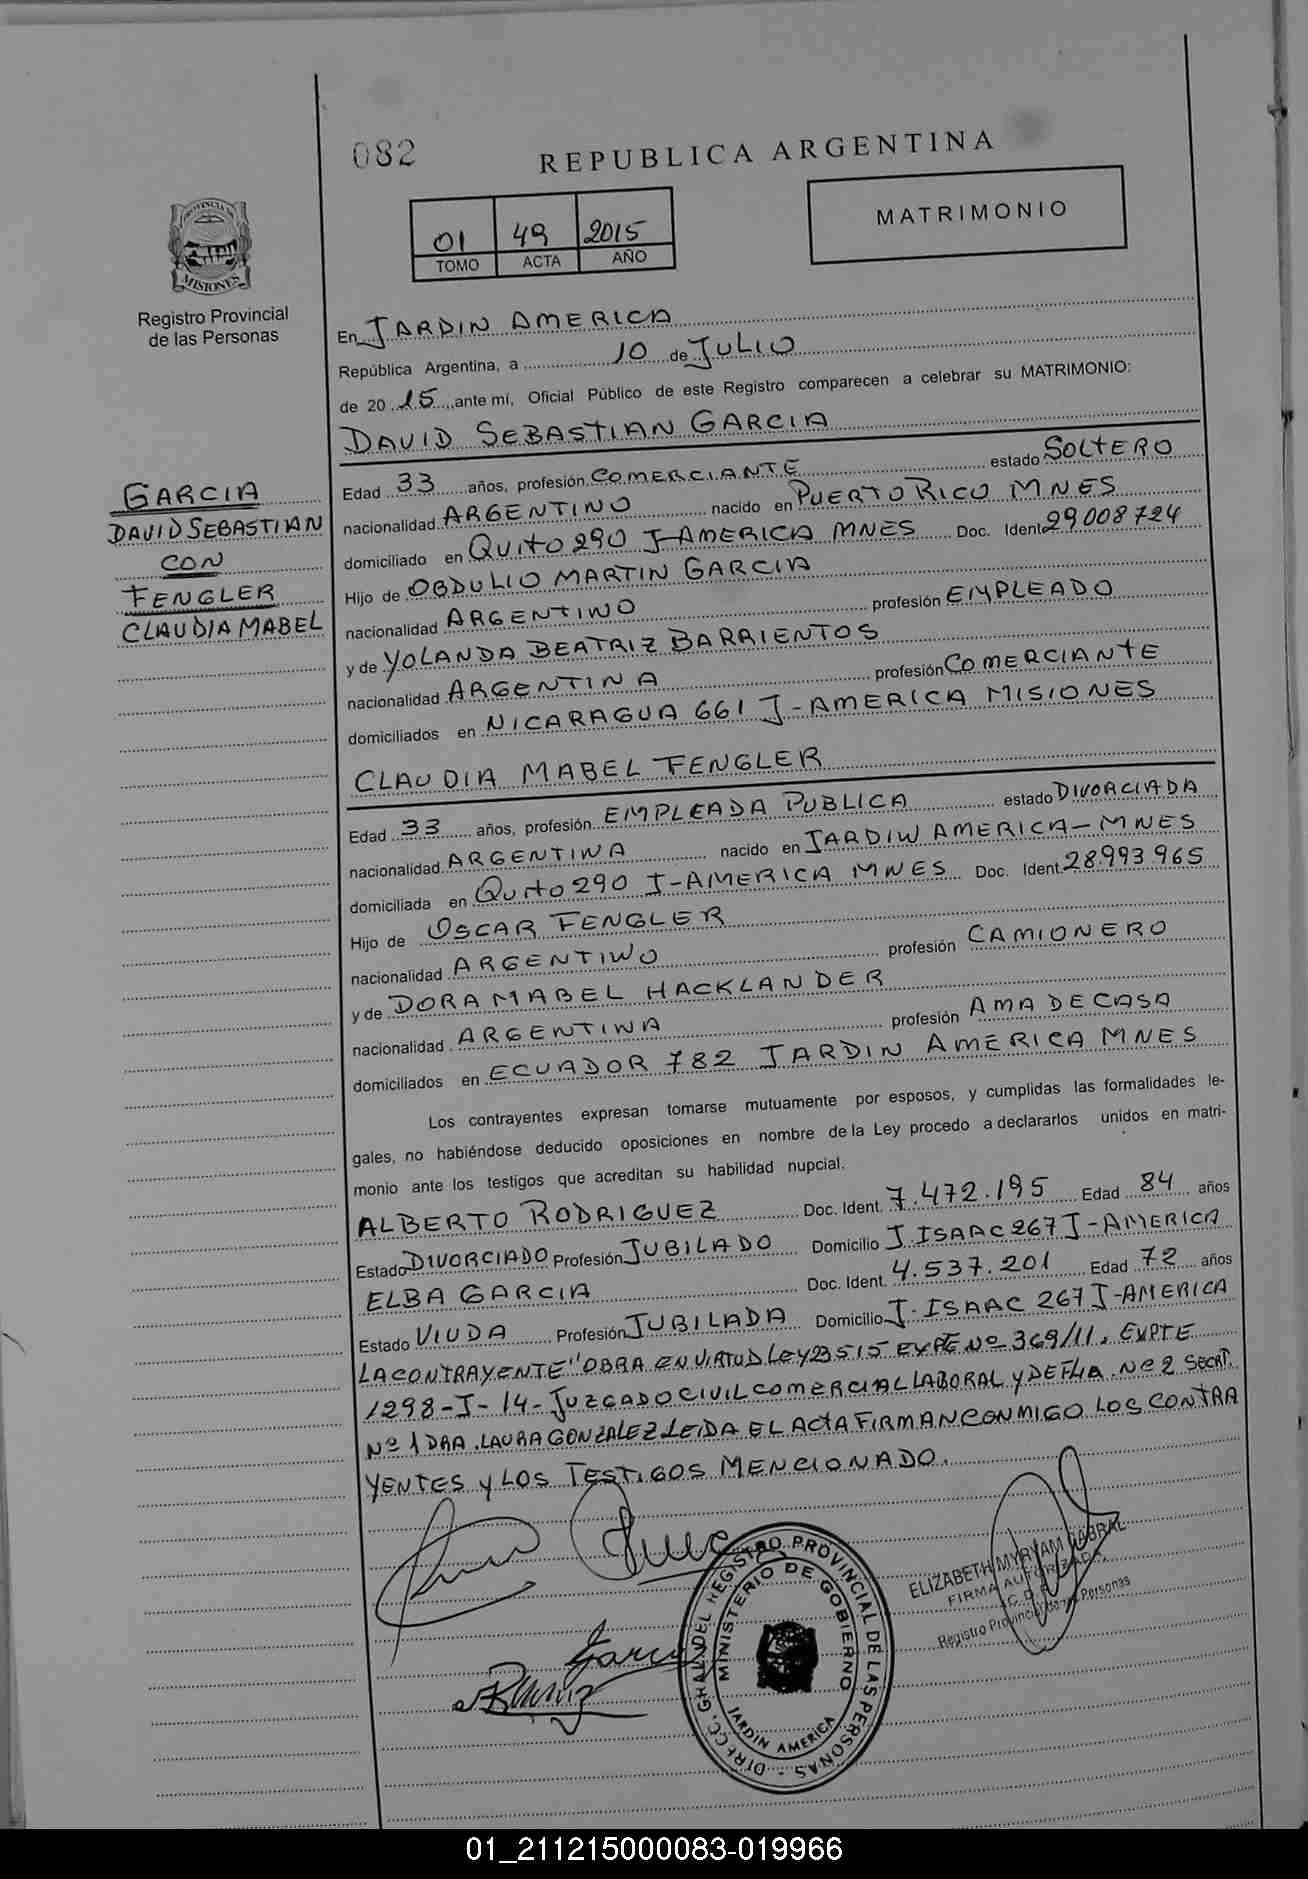 082
REPUBLICA ARGENTINA
MATRIMONIO
01 49 2015
TOMO ACTA AÑO
PROVINCIA DE
MISIONES
Registro Provincial
de las Personas
GARCIA
DAVID SEBASTIAN
CON
FENGLER
CLAUDIA MABEL
En JARDIN AMERICA
República Argentina, a 10 de JULIO
de 20 15 ante mí, Oficial Público de este Registro comparecen a celebrar su MATRIMONIO:
DAVID SEBASTIAN GARCIA
Edad 33 años, profesión COMERCIANTE estado SOLTERO
nacionalidad ARGENTINO nacido en PUERTO RICO MNES
domiciliado en QUITO 290 J-AMERICA MNES Doc. Ident. 29.008724
Hijo de OBDULIO MARTIN GARCIA
nacionalidad ARGENTINO profesión EMPLEADO
y de YOLANDA BEATRIZ BARRIENTOS
nacionalidad ARGENTINA profesión COMERCIANTE
domiciliados en NICARAGUA 661 J-AMERICA MISIONES
CLAUDIA MABEL FENGLER
Edad 33 años, profesión EMPLEADA PUBLICA estado DIVORCIADA
nacionalidad ARGENTINA nacido en JARDIN AMERICA-MNES
domiciliada en QUITO 290 J-AMERICA MNES Doc. Ident. 28.993.965
Hijo de OSCAR FENGLER
nacionalidad ARGENTINO profesión CAMIONERO
y de DORA MABEL HACKLANDER
nacionalidad ARGENTINA profesión AMA DE CASA
domiciliados en ECUADOR 782 JARDIN AMERICA MNES
Los contrayentes expresan tomarse mutuamente por esposos, y cumplidas las formalidades le-
gales, no habiéndose deducido oposiciones en nombre de la Ley procedo a declararlos unidos en matri-
monio ante los testigos que acreditan su habilidad nupcial.
ALBERTO RODRIGUEZ Doc. Ident. 7.472.195 Edad 84 años
Estado DIVORCIADO Profesión JUBILADO Domicilio J ISAAC 267 J-AMERICA
ELBA GARCIA Doc. Ident. 4.537.201 Edad 72 años
Estado VIUDA Profesión JUBILADA Domicilio J. ISAAC 267 J-AMERICA
LA CONTRAYENTE "OBRA EN VIRTUD LEY 23515 EXPE Nº 369/11. EXPTE
1298-J-14-JUZGADO CIVIL COMERCIAL LABORAL y DE FLIA. Nº 2 SECRT.
Nº 1 DRA. LAURA GONZALEZ LEIDA EL ACTA FIRMAN CONMIGO LOS CONTRA
YENTES y LOS TESTIGOS MENCIONADO.
DIRECC. GRAL. DEL REGISTRO PROVINCIAL DE LAS PERSONAS
MINISTERIO DE GOBIERNO
JARDIN AMERICA
ELIZABETH MYRYAM CABRAL
FIRMA AUTORIZADA
Registro Provincial de las Personas
Garcia
01_211215000083-019966